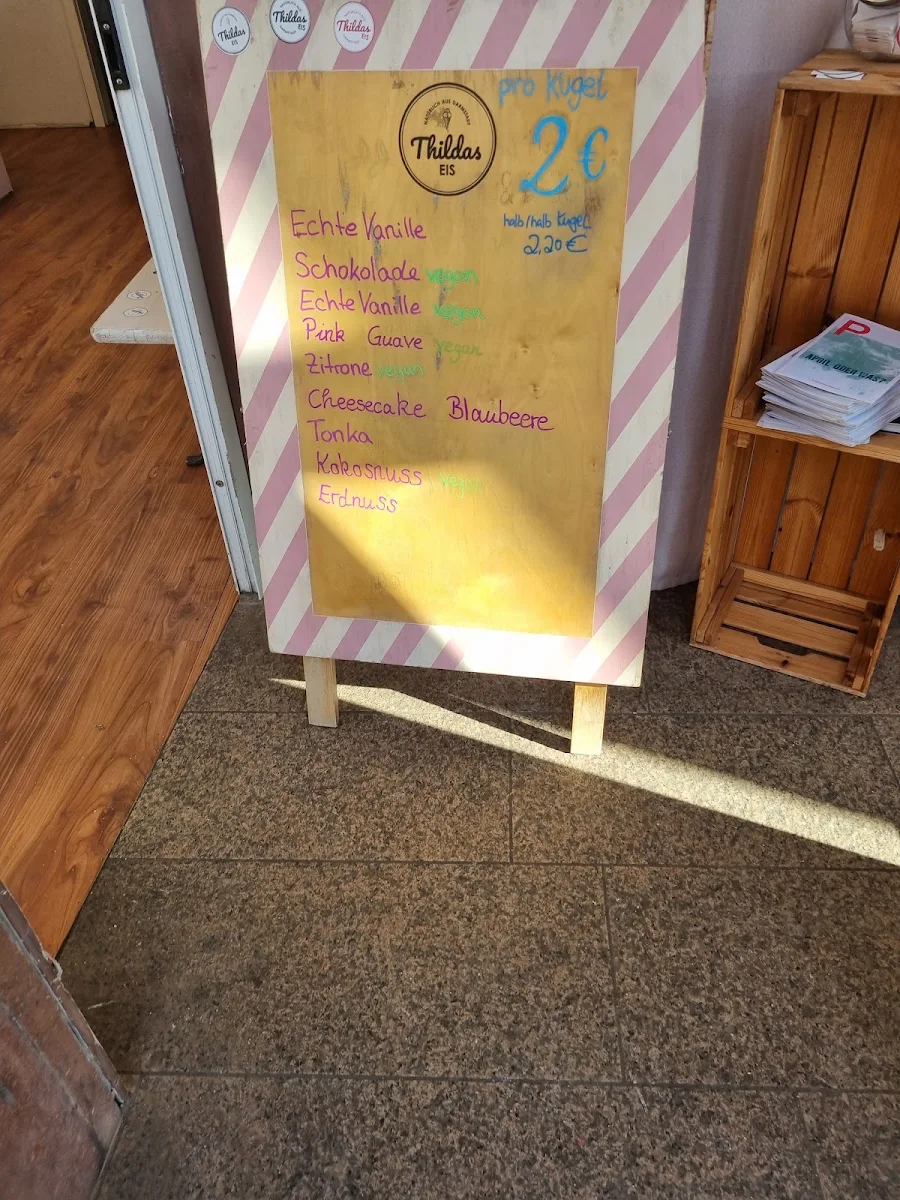 Thildas
EIS
Thildas
EIS
Thildas
EIS
pro Kugel
2€
HANDMADE AUS DARMSTADT
Thildas
EIS
halb/halb Kugel
2,20€
Echte Vanille
Schokolade vegan
Echte Vanille vegan
Pink Guave vegan
Zitrone vegan
Cheesecake Blaubeere
Tonka
Kokosnuss vegan
Erdnuss
P
APRIL ODER WAS?